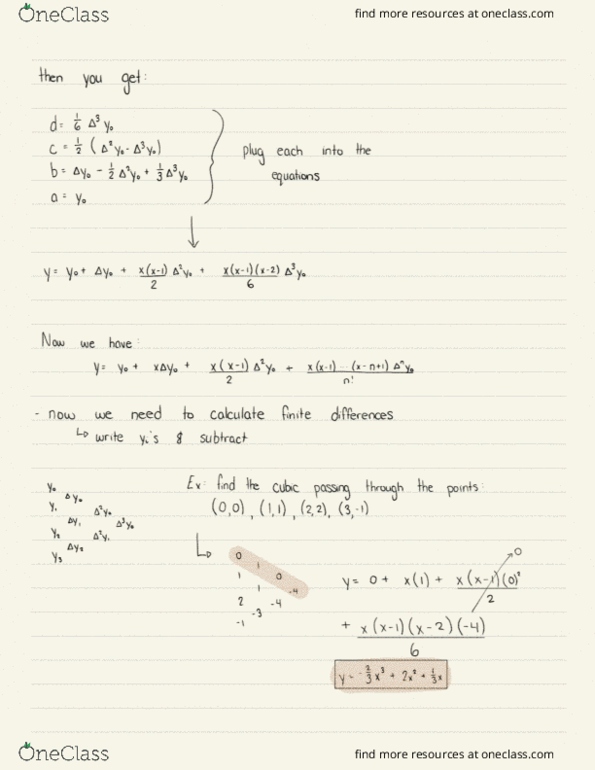 OneClass find more resources at oneclass.com
then you get:
d = 1/6 Δ³y₀
c = 1/2 (Δ²y₀ - Δ³y₀)
b = Δy₀ - 1/2 Δ²y₀ + 1/3 Δ³y₀
a = y₀
plug each into the
equations
y = y₀ + Δy₀ + x(x-1)/2 Δ²y₀ + x(x-1)(x-2)/6 Δ³y₀
Now we have:
y = y₀ + xΔy₀ + x(x-1)/2 Δ²y₀ + x(x-1)...(x-n+1) Δⁿy₀/n!
- now we need to calculate finite differences
↳ write yᵢ's & subtract
y₀
Δy₀
y₁ Δ²y₀
Δy₁ Δ³y₀
y₂ Δ²y₁
Δy₂
y₃
Ex: find the cubic passing through the points:
(0,0), (1,1), (2,2), (3,-1)
0
1
1 0
1 -4
2 -4
-3
-1
y = 0 + x(1) + x(x-1)(0)²/2 → 0
+ x(x-1)(x-2)(-4)/6
y = -2/3 x³ + 2x² + 1/3 x
OneClass find more resources at oneclass.com